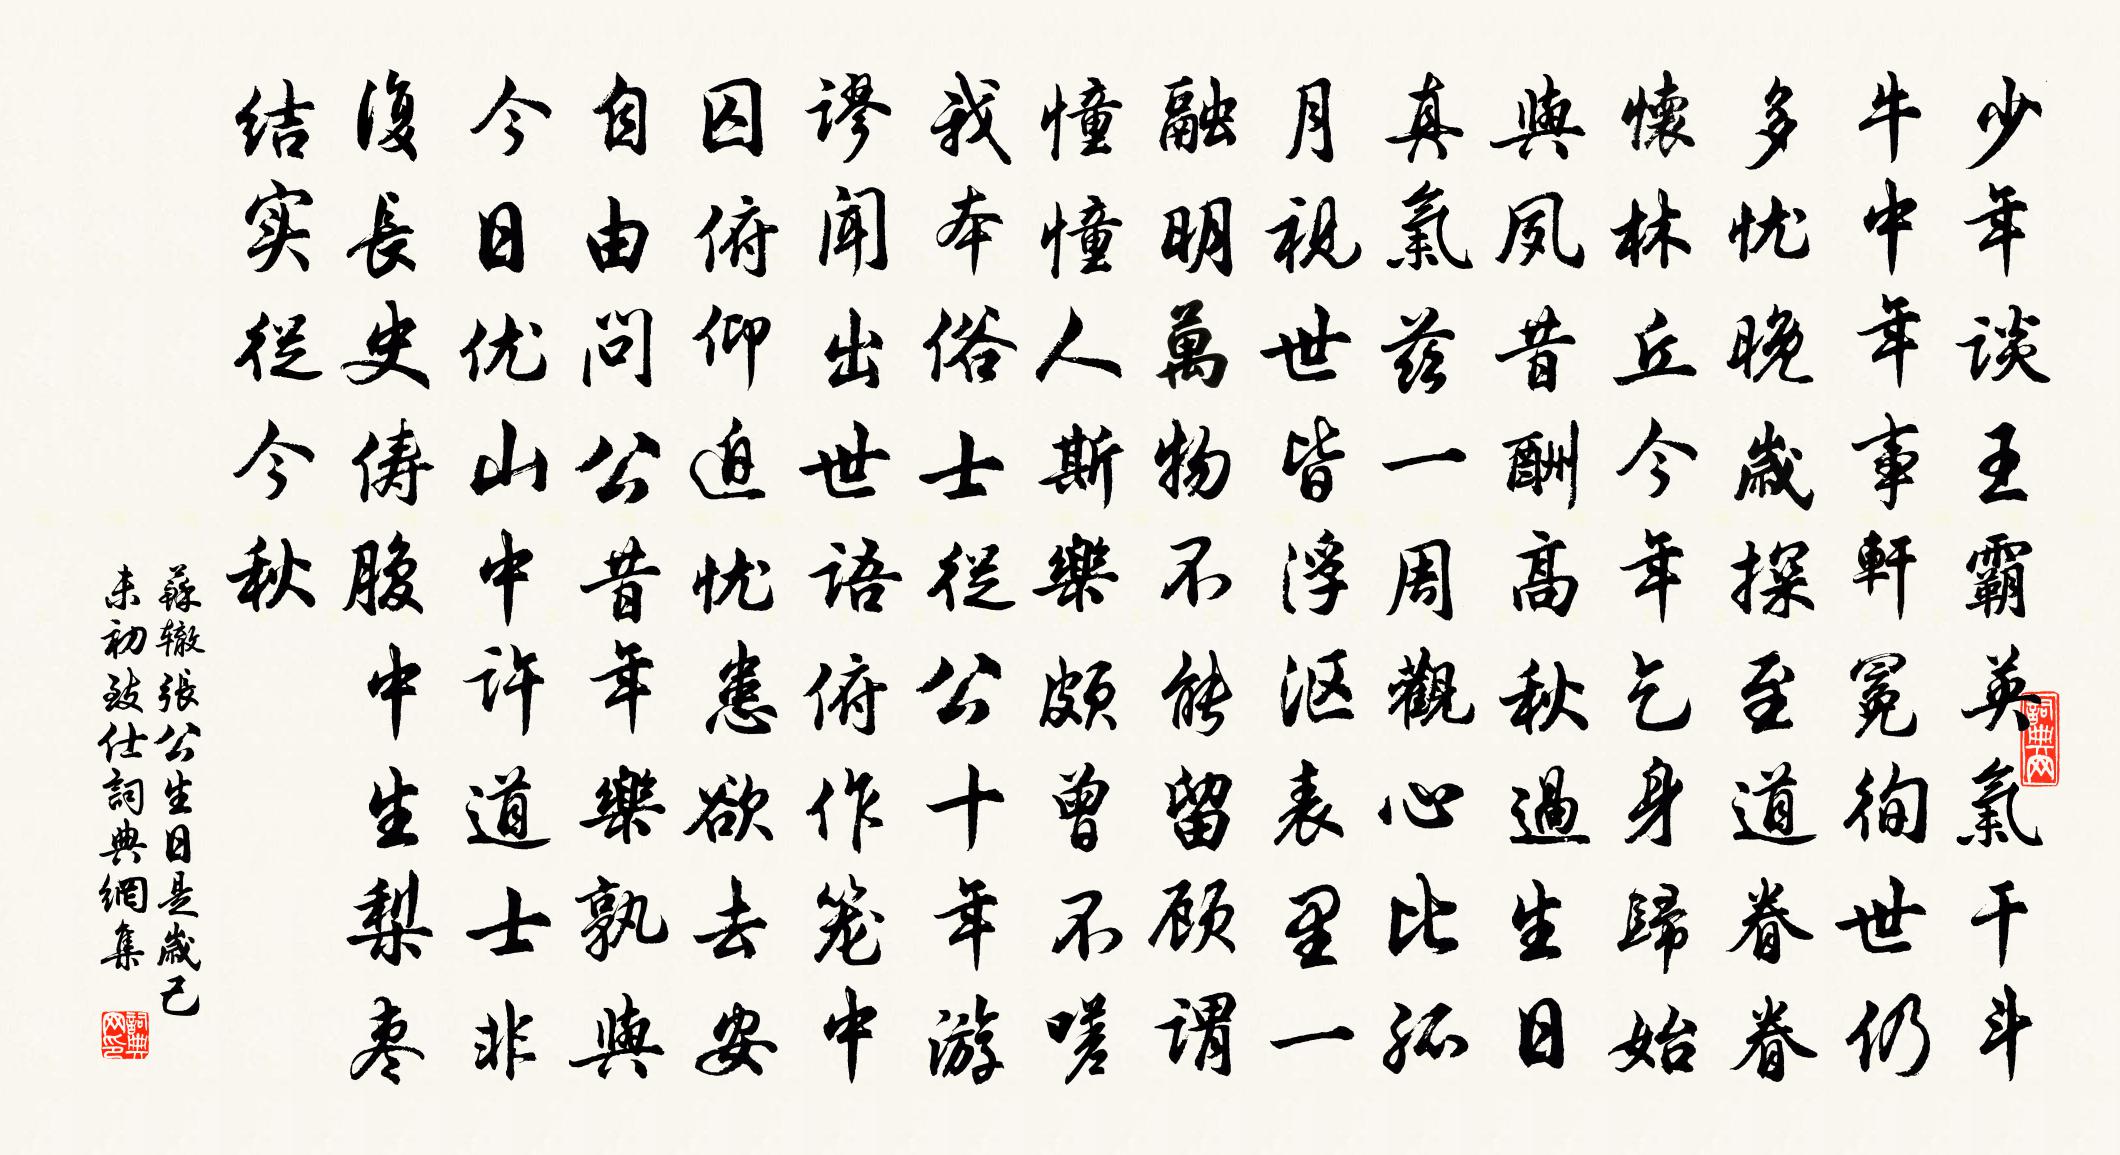 少年谈王霸英氣干斗
牛中年事軒冕徇世仍
多忧晚歲探至道眷眷
懷林丘今年乞身歸始
與夙昔酬高秋過生日
真氣兹一周觀心比孤
月視世皆浮沤表里一
融明萬物不能留顾谓
憧憧人斯樂頗曾不嗟
我本俗士從公十年游
谬闻出世语俯作笼中
囚俯仰迫忧患欲去安
自由问公昔年樂孰與
今日优山中许道士非
復長史俦腹中生梨枣
结实從今秋
蘇辙張公生日是歲己
未初致仕詞典網集
詞典网
詞典网